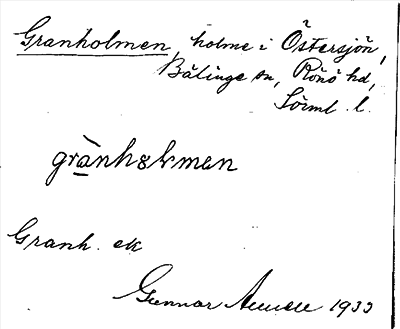 Granholmen, holme i Östersjön,
Bälinge sn, Rönö hd,
Sörml. l.
grànhɷlmen
Granh. ek
Gunnar 1933